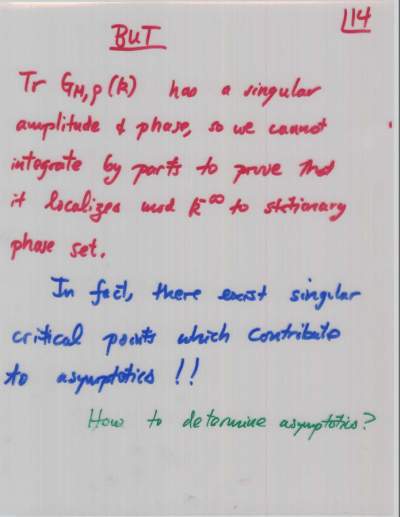 14
BUT
Tr G_{M,ρ}(k) has a singular
amplitude & phase, so we cannot
integrate by parts to prove that
it localizes mod k^{-∞} to stationary
phase set.
In fact, there exist singular
critical points which contribute
to asymptotics !!
How to determine asymptotics?